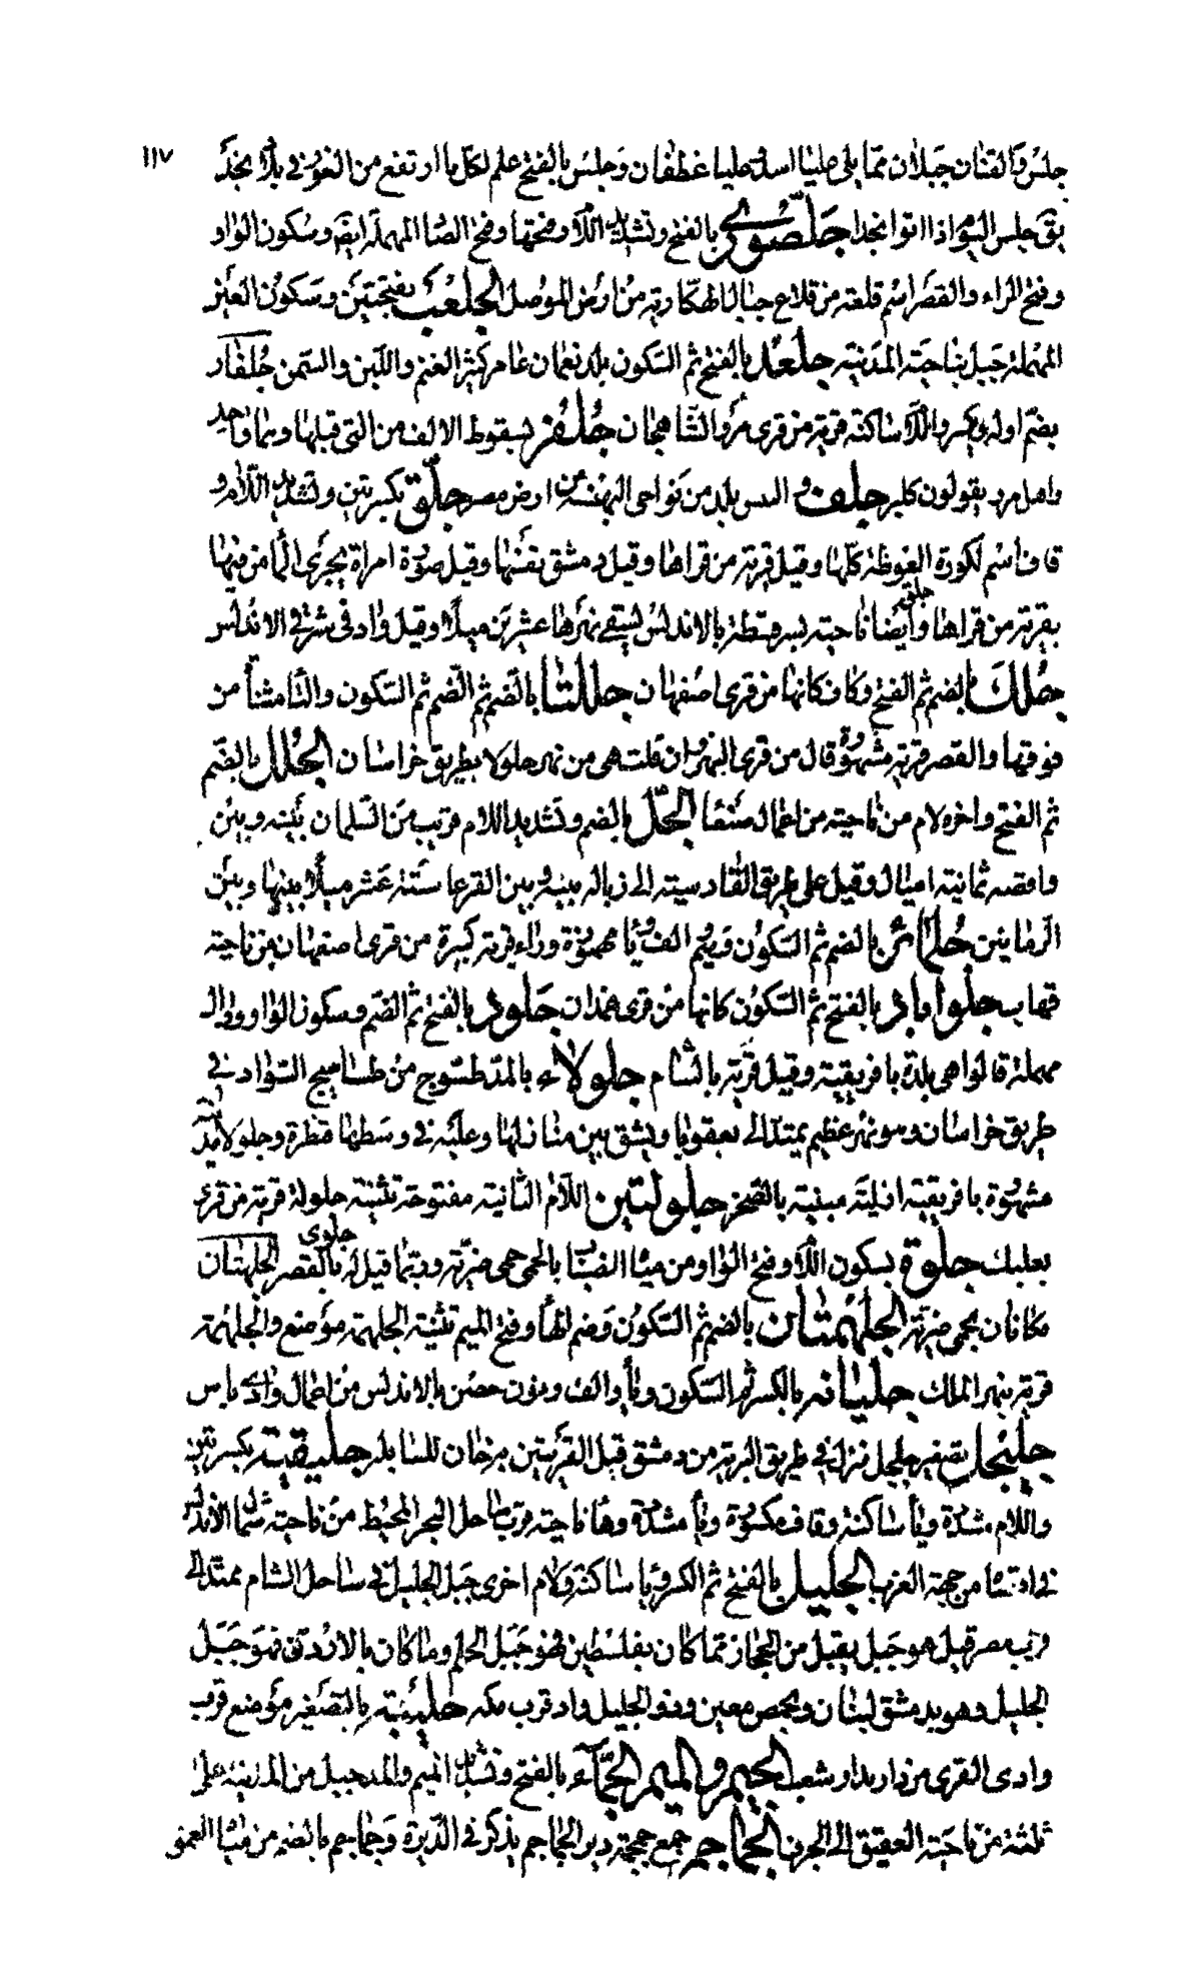 ١١٧
جلس والقنان جبلان مما يلى عليا اسد عليا غطفان وجلس بالفتح علم لكل ما ارتفع من الغور فى بلاد نجد
يق جلس القوم اذا اتوا نجدا جلصورى بالفتح وتشديد اللام وفتحها وفتح الصاد المهملة ايضه وسكون الواو
وفتح الراء والقصر اسم قلعة من قلاع جبال الهكارية من ارض الموصل الجلعب بفتحتين وسكون العين
المهملة جبل بناحية المدينة جلعد بالفتح ثم السكون بلد نعمان عامر كثير الغنم واللبن والسمن جلفار
بضم اوله ويكسر واللام ساكنة قرية من قرى مرو الشاهجان جلفر بسقوط الالف من التى قبلها وهما واحد
واهل مرو يقولون كلبر جلف و بلد من نواحى البهنسة من ارض مصر جلق بكسرتين وتشديد اللام و
قاف اسم لكورة الغوطة كلها وقيل قرية من قراها وقيل دمشق نفسها وقيل صورة امراة يجرى الما من فيها
بقرية من قراها وايضا جلق ناحية بسرقسطة بالاندلس يسقى نهرها عشرين ميلا وقيل واد فى شرقى الاندلس
جلك بالضم ثم الفتح وكاف كانها من قرى اصفهان جللتا بالضم ثم الضم ثم السكون والتا مثناة من
فوقها والقصر قرية مشهورة قال من قرى النهروان قلت هى من نهر جلولا بطريق خراسان الجلل بالضم
ثم الفتح واخره لام من ناحية من اعمال صنعا الجل بالضم وتشديد اللام قريب من السلمان بينه وبين
واقصه ثمانية اميال وقيل على طريق القادسية الى زباله بينه وبين القرعا ستة عشر ميلا بينها وبين
الرمانين جلمائر بالضم ثم السكون وميم الف ويا مهموزة وراء قرية كبيرة من قرى اصفهان من ناحية
قهاب جلوا واد بالفتح ثم السكون كانها من قرى همذان جلود بالفتح ثم الضم وسكون الواو ودال
مهملة قالوا هى بلدة بافريقية وقيل قرية بالشام جلولاء بالمد طسوج من طساسيج السواد فى
طريق خراسان وهو نهر عظيم يمتد الى بعقوبا ويشق بين منازلها وعليه فى وسطها قنطرة وجلولا مدينة
مشهورة بافريقية ازلية مبنية بالصخر جلولتين اللام الثانية مفتوحة تثنية جلولة قرية من قرى
بعلبك جلوة بسكون اللام وفتح الواو من مياه الضباب بالحمى حمى ضرية وربما قيل له جلوى بالقصر الجلهتان
مكانان بحمى ضرية الجلهمتان بالضم ثم السكون وضم الها وفتح الميم تثنية الجلهمة موضع والجلهمة
قرية بنهر الملك جليانه بالكسر ثم السكون ويأ والف ونون حصن بالاندلس من اعمال وادى ياس
جليجل تصغير جلجل منزل فى طريق البرية من دمشق قبل القريتين جليقية بكسرتين
واللام مشددة ويأ ساكنة وقاف مكسورة ويأ مشددة وها ناحية قرب ساحل البحر المحيط من ناحية شمال الاندلس
فى اقصا من جهة الغرب الجليل بالفتح ثم الكسر ويا ساكنة ولام اخرى جبل الجليل فى ساحل الشام ممتد الى
قرب مصر قيل هو جبل يقبل من الحجاز فما كان بفلسطين فهو جبل الحلم وما كان بالاردن فهو جبل
الجليل وهو بدمشق لبنان وبحمص معين وذو الجليل واد قرب مكه جليئية بالتصغير موضع قرب
وادى القرى من دار بدا وشعب الجيم والميم الجماء بالفتح وتشديد الميم والمد جبيل من المدينة على
ثلثة من ناحية العقيق الى الجرف الجماجم جمع جمجمة دير الجماجم يذكر فى الديرة وجماجم بالضم من مياه العمق